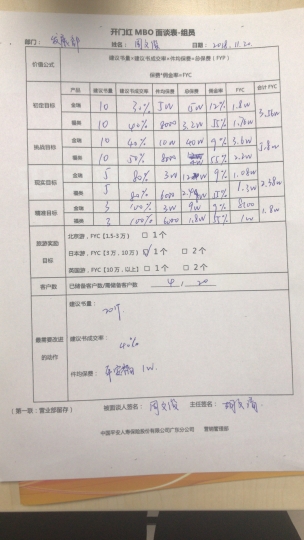 开门红 MBO 面谈表-组员
部门： 姓名： 周文滔 日期： 2018.11.20.
价值公式 建议书量*建议书成交率*件均保费=总保费（FYP）
保费*佣金率=FYC
产品 建议书量 建议书成交率 件均保费 总保费 佣金率 FYC 合计 FYC
初定目标 金瑞 10 30% 5W 15W 12% 1.8W
福 10 40% 8000 3.2W 55% 1.76W 3.56W
挑战目标 金瑞 10 40% 10W 40W 9% 3.6W
福 10 50% 8000 55% 2.2W 5.8W
现实目标 金瑞 5 80% 3W 9% 1.08W
福 5 80% 6000 55% 1.3W 2.38W
精准目标 金瑞 3 100% 3W 9W 9% 8100
福 3 100% 6000 1.8W 55% 1W 1.8W
旅游奖励目标
北京游，FYC【1.5-3万） □ 1个
日本游，FYC【3万，10万） 1个 □ 2个
英国游，FYC【10万，以上】 □ 1个 □ 2个
客户数 已储备客户数/需储备客户数 4 / 20
最需要改进的动作
建议书量：
20件
建议书成交率：
40%
件均保费： 1W
（第一联：营业部留存） 被面谈人签名： 周文滔 主任签名：
中国平安人寿保险股份有限公司广东分公司 营销管理部